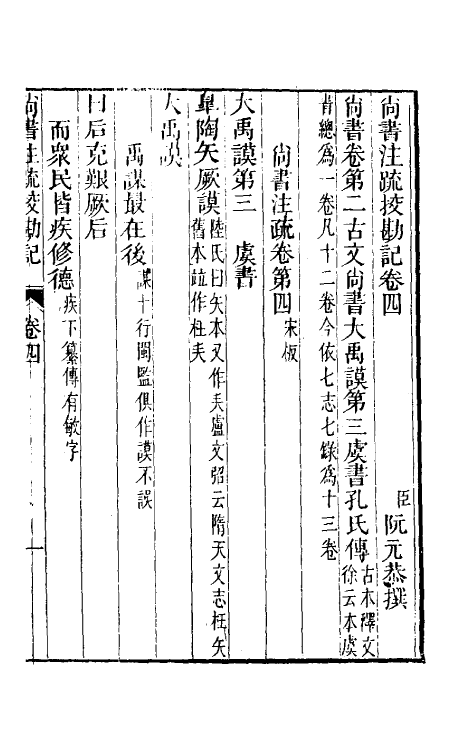 尚書注疏挍勘記卷四
臣阮元恭撰
尚書卷第二古文尚書大禹謨第三虞書孔氏傳古本釋文徐云本虞
書總爲一卷凡十二卷今依七志七錄爲十三卷
尚書注疏卷第四宋板
大禹謨第三　虞書
皐陶矢厥謨陸氏曰矢本又作𠂕盧文弨云隋天文志枉矢舊本竝作枉夫
大禹謨
禹謀最在後謀十行閩監俱作謨不誤
曰后克艱厥后
而衆民皆疾修德疾下纂傳有敏字
尚書注疏挍勘記　卷四　一